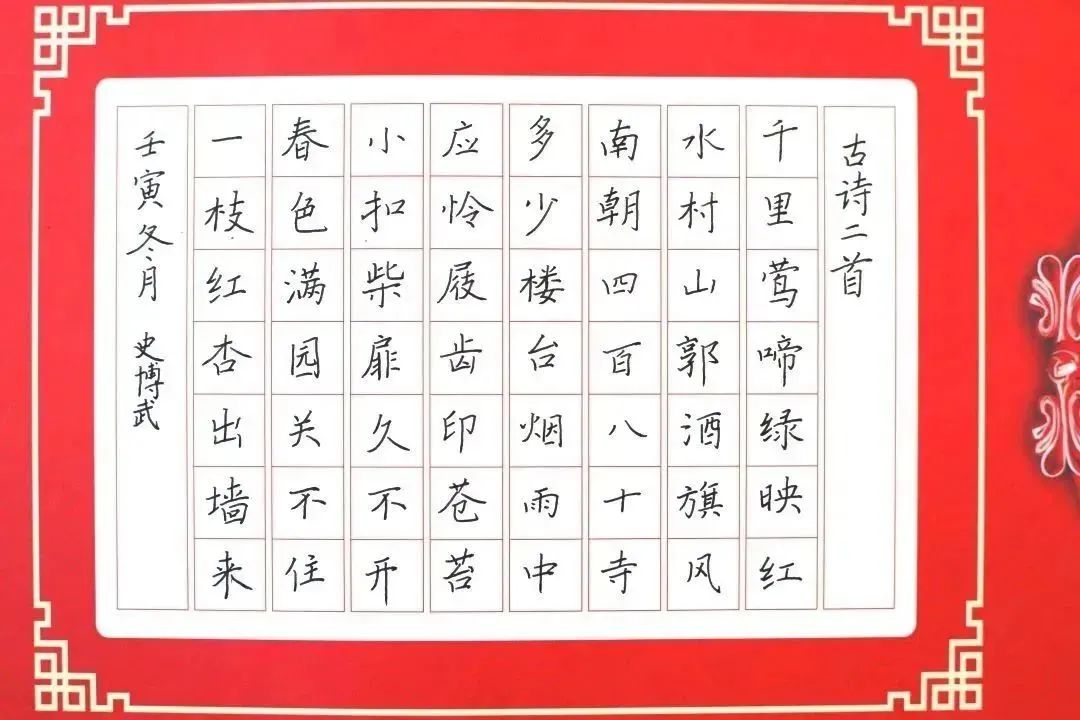 古诗二首
千里莺啼绿映红
水村山郭酒旗风
南朝四百八十寺
多少楼台烟雨中
应怜屐齿印苍苔
小扣柴扉久不开
春色满园关不住
一枝红杏出墙来
壬寅冬月 史博武